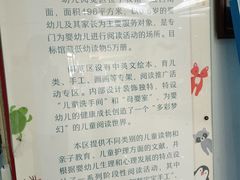 面、面积196平方米，以0-6岁的婴
幼儿及其家长为主要服务对象，是专
门为婴幼儿进行阅读活动的场所。目
标馆藏低幼读物5万册。
借阅区设有中英文绘本、育儿
类、手工、画画等专架，阅读推广活
动专区。内部设计装饰独特，特设
“儿童洗手间”和“母婴室”，为婴
幼儿的健康成长创造了一个“多彩梦
幻”的儿童阅读世界。
本区提供不同类别的儿童读物和
亲子教育、儿童护理方面的文献，并
根据婴幼儿生理和心理发展的特点设
系列阶段性阅读活动，其中